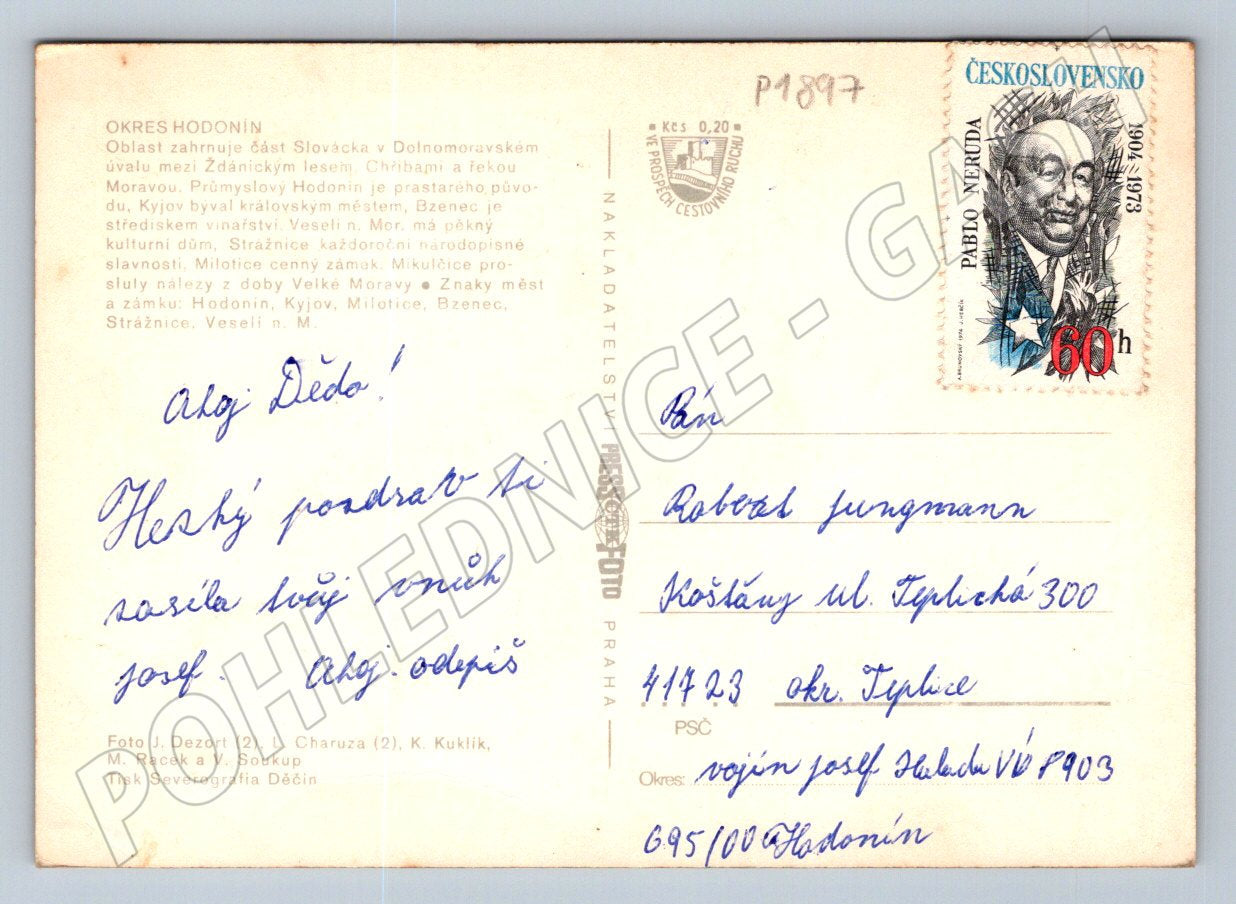 P1897
OKRES HODONÍN
Oblast zahrnuje část Slovácka v Dolnomoravském
úvalu mezi Ždánickým lesem, Chřibami a řekou
Moravou. Průmyslový Hodonín je prastarého půvo-
du, Kyjov býval královským městem, Bzenec je
střediskem vinařství. Veselí n. Mor. má pěkný
kulturní dům, Strážnice každoroční národopisné
slavnosti, Milotice cenný zámek. Mikulčice pro-
sluly nálezy z doby Velké Moravy ● Znaky měst
a zámku: Hodonín, Kyjov, Milotice, Bzenec,
Strážnice, Veselí n. M.
Ahoj Dědo!
Hezký pozdrav ti
zasíla tvůj vnuk
josef. Ahoj. odepiš
Foto J. Dezort (2), L. Charuza (2), K. Kuklík,
M. Racek a V. Soukup
Tisk Severografia Děčín
NAKLADATELSTVÍ PRESSFOTO PRAHA
ČTK
Kčs 0,20
VE PROSPĚCH CESTOVNÍHO RUCHU
ČESKOSLOVENSKO
PABLO NERUDA
1904-1973
A. BRUNOVSKÝ 1974 J. HERČÍK
60h
Pán
Robert jungmann
Košťany ul. Teplická 300
41723 okr. Teplice
PSČ
Okres: vojín josef Halada VÚ 8903
695/00 Hodonín
POHLEDNICE - GASH